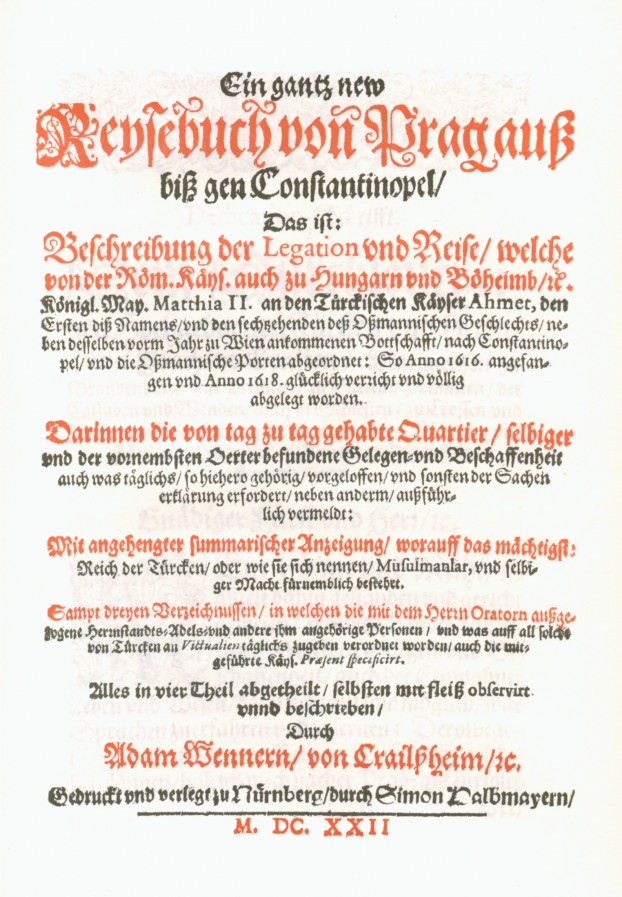 Ein gantz new
Reysebuch von Prag auß
biß gen Constantinopel/
Das ist:
Beschreibung der Legation vnd Reise/ welche
von der Röm. Käys. auch zu Hungarn vnd Böheimb/ ꝛc.
Königl. May. Matthia II. an den Türckischen Käyser Ahmet, den
Ersten diß Namens/ vnd den sechzehenden deß Oßmannischen Geschlechts/ ne-
ben desselben vorm Jahr zu Wien ankommenen Bottschafft/ nach Constantino-
pel/ vnd die Oßmannische Porten abgeordnet: So Anno 1616. angefan-
gen vnd Anno 1618. glücklich verricht vnd völlig
abgelegt worden.
Darinnen die von tag zu tag gehabte Quartier/ selbiger
vnd der vornembsten Oerter befundene Gelegen- vnd Beschaffenheit
auch was täglichs/ so hiehero gehörig/ vorgeloffen/ vnd sonsten der Sachen
erklärung erfordert/ neben anderm/ außführ-
lich vermeldt:
Mit angehengter summarischer Anzeigung/ worauff das mächtigst:
Reich der Türcken/ oder wie sie sich nennen/ Musulmanlar, vnd selbi-
ger Macht fürnemblich bestehet.
Sampt dreyen Verzeichnussen/ in welchen die mit dem Herrn Oratorn außge-
zogene Herrnstandts- Adels- vnd andere ihm angehörige Personen/ vnd was auff all solche
von Türcken an Victualien täglichs zugeben verordnet worden/ auch die mit-
geführte Käys. Præsent specificirt.
Alles in vier Theil abgetheilt/ selbsten mit fleiß observirt
vnnd beschrieben/
Durch
Adam Wennern/ von Crailßheim/ ꝛc.
Gedruckt vnd verlegt zu Nürnberg/ durch Simon Halbmayern/
M. DC. XXII